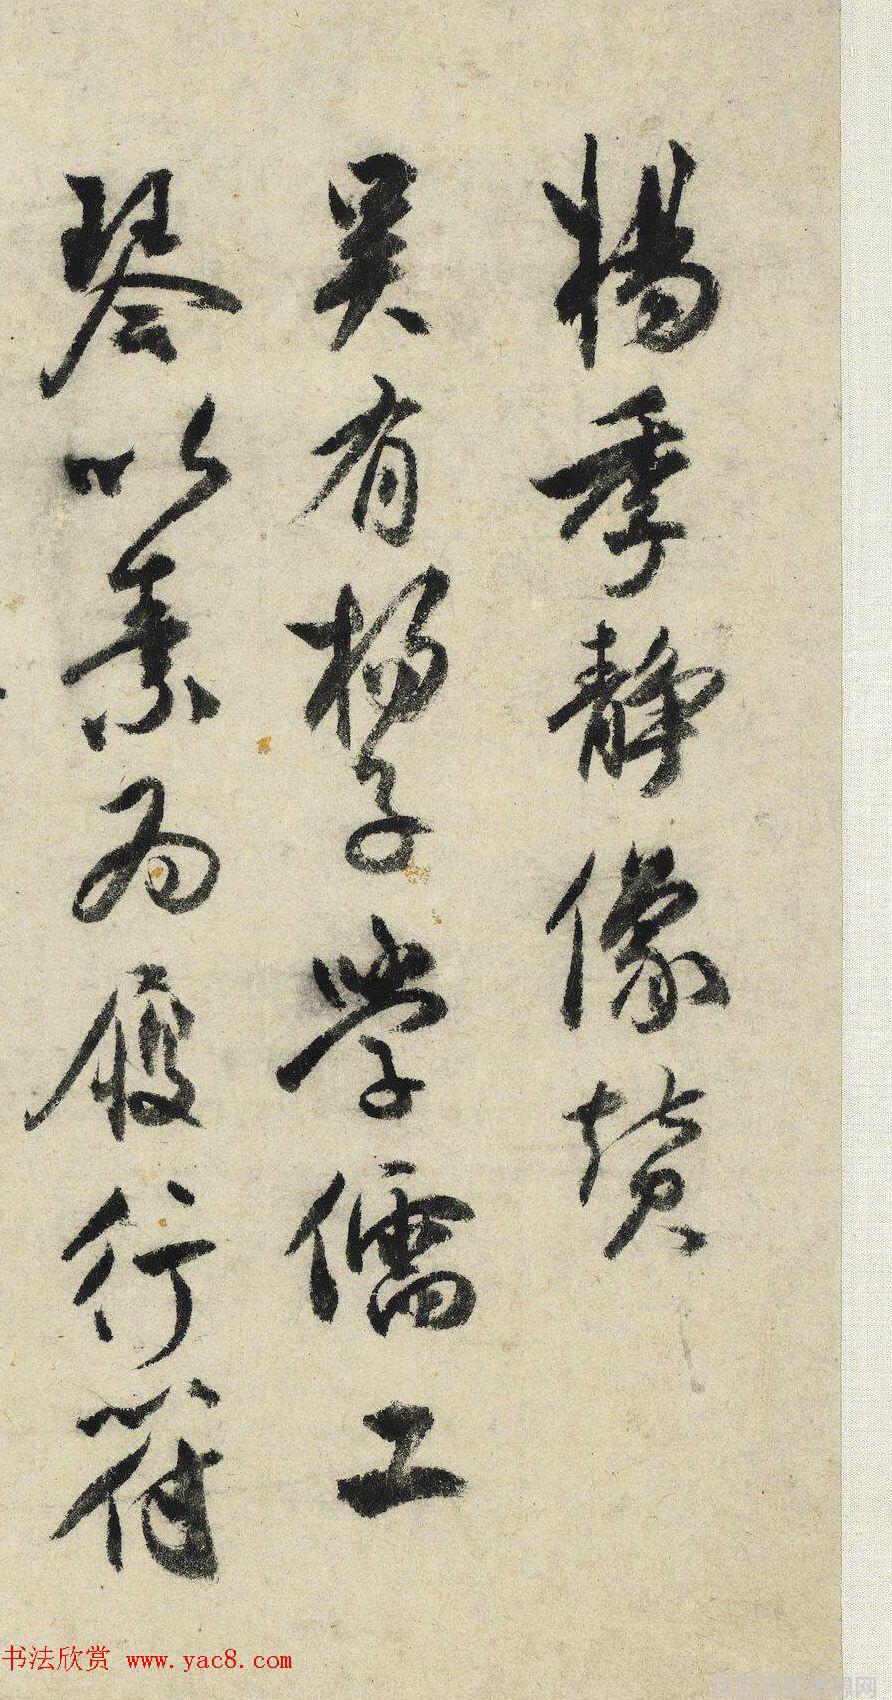 楊季靜像贊
吴有楊子學儒工
琴以素為履行符
书法欣赏 www.yac8.com